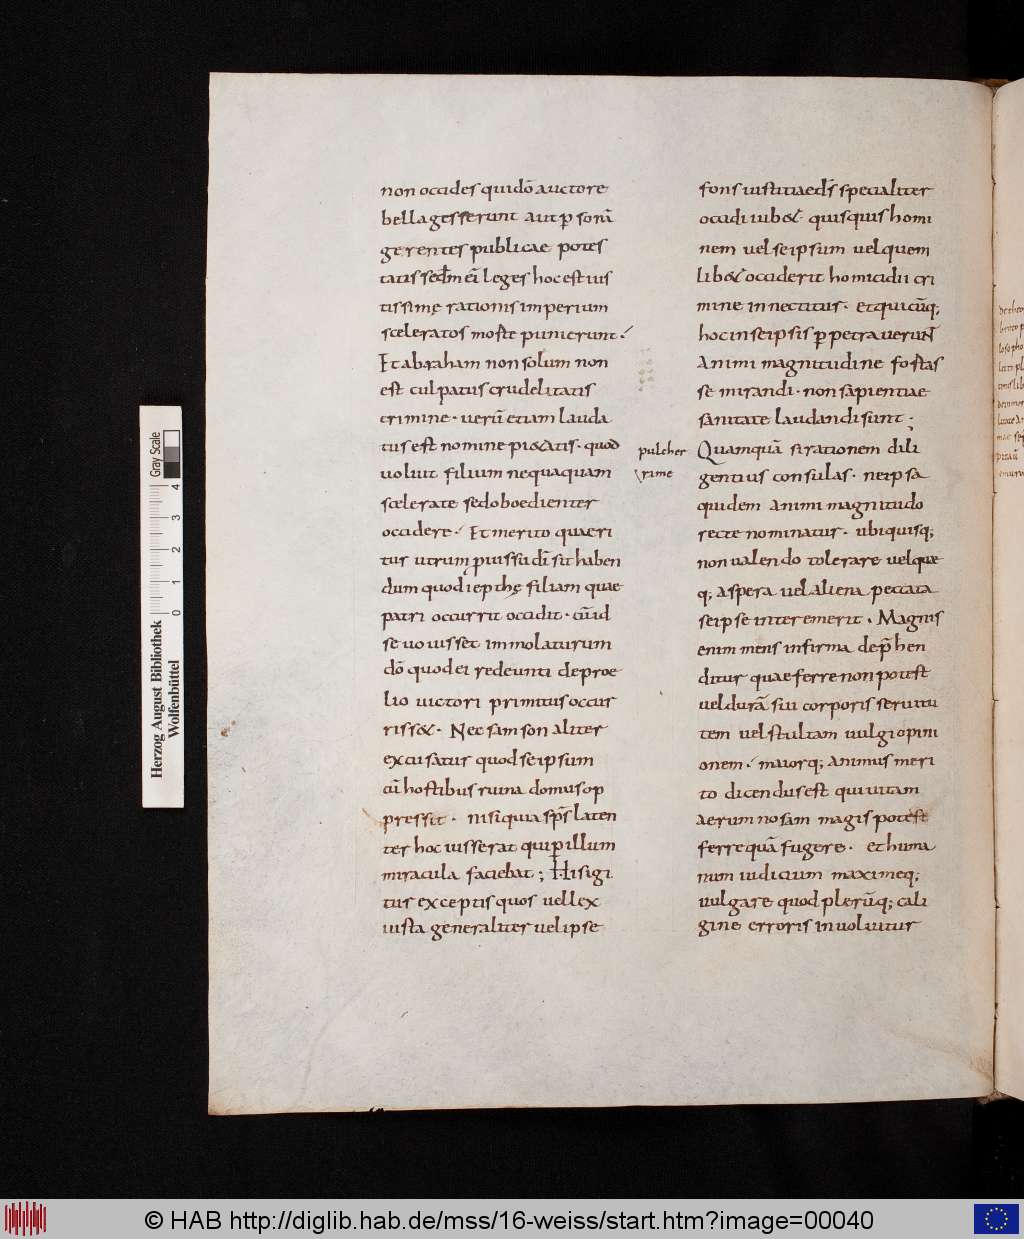 non occides qui dō auctore
bella gesserunt aut p̱ sonā
gerentes publicae potes
tatis scd̄m ei leges hoc est ius
tissime rationis imperium
sceleratos morte punierunt.
Et abraham non solum non
est culpatus crudelitatis
crimine · uerū etiam lauda
tus est nomine pi&atis · quod
uoluit filium nequaquam
scelerate sed oboedienter
occidere · Et merito quaeri
tur utrum p̱ iussu dī sit haben
dum quod iepthę filiam quae
patri occurrit occidit · cū id
se uouisset immolaturum
dō quod ei redeunti de proe
lio uictori primitus occur
riss& · Nec samson aliter
excusatur quod se ipsum
cū hostibus ruina domus op
pressit · nisi quia sp̄s laten
ter hoc iusserat qui p̱ illum
miracula faciebat ; His igi
tur exceptis quos uel lex
iusta generaliter uel ipse
pulcher
rime
fons iustitiae d̄s specialiter
occidi iub& · quisquis homi
nem uel se ipsum uel quem
lib& occiderit homicidii cri
mine innectitur · et quicūq;
hoc in se ipsis p̱petrauerunt
Animi magnitudine fortas
se mirandi · non sapientiae
sanitate laudandi sunt ;
Quamquā si rationem dili
gentius consulas · ne ipsa
quidem animi magnitudo
recte nominatur · ubi quisq;
non ualendo tolerare uel quae
q; aspera uel aliena peccata
se ipse interemerit . Magis
enim mens infirma dep̄hen
ditur quae ferre non potest
uel durā sui corporis seruitu
tem uel stultam uulgi opini
onem · maiorq; animus meri
to dicendus est qui uitam
aerumnosam magis potest
ferre quā fugere · et huma
num iudicium maximeq;
uulgare quod plerūq; cali
gine erroris inuoluitur
Herzog August Bibliothek
Wolfenbüttel
Gray Scale
0 1 2 3 4
© HAB http://diglib.hab.de/mss/16-weiss/start.htm?image=00040